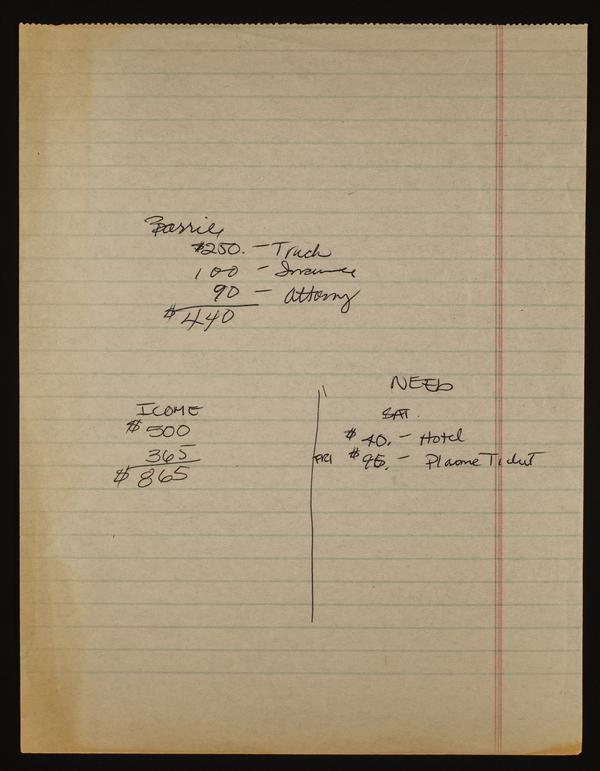 Barrie
$250. — Truck
100 — Insurance
90 — Attorny
$440
ICOME
$500
365
$865
NEED
SAT.
$40. — Hotel
FRI $95. — Plane Ticket